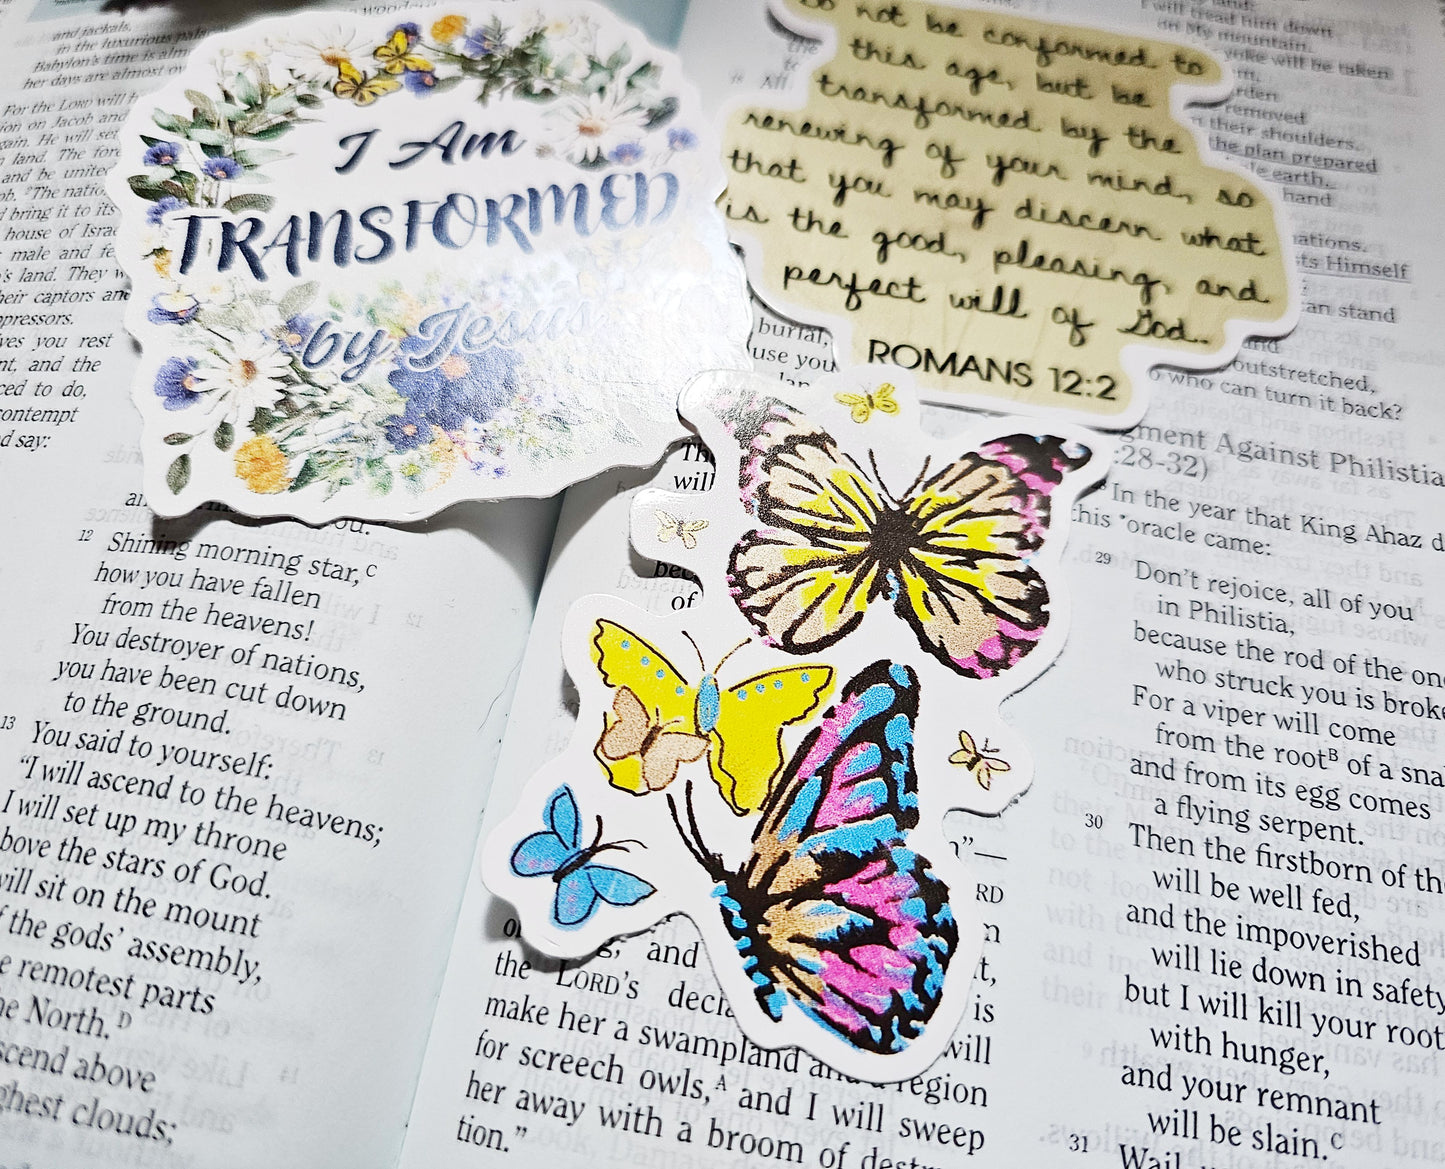 I Am
TRANSFORMED
by Jesus
not be conformed to
this age, but be
transformed by the
renewing of your mind, so
that you may discern what
is the good, pleasing, and
perfect will of God.
ROMANS 12:2
and jackals,
in the luxurious
Babylon's time is
her days are almost
For the LORD will
on Jacob and
He will
land. The
and be
The
bring it to its
house of
male and
land. They
captors
you rest
and the
to do,
contempt
say:
12 Shining morning star,C
how you have fallen
from the heavens!
You destroyer of nations,
you have been cut down
to the ground.
13 You said to yourself:
“I will ascend to the heavens;
I will set up my throne
the stars of God.
sit on the mount
the gods’ assembly,
remotest parts
North.D
above
clouds;
burial,
use you
will
of
and
the LORD’S
make her a swampland and a region
for screech owls,A and I will sweep
her away with a broom of
tion.”
is
will
I will tread him down
on My mountain.
yoke will be taken
removed
their shoulders.
the plan prepared
earth.
hand
Himself
can stand
outstretched,
who can turn it back?
Against
:28-32)
In the year that King Ahaz
this oracle came:
29 Don’t rejoice, all of you
in Philistia,
because the rod of the
who struck you is
For a viper will come
from the rootB of a
and from its egg comes
a flying serpent.
30 Then the firstborn of
will be well fed,
and the impoverished
will lie down in
but I will kill your
with hunger,
and your remnant
will be slain.C
31